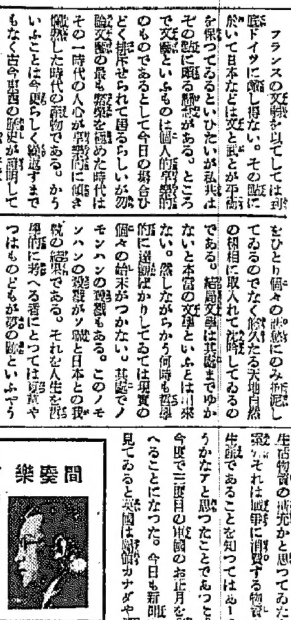 フランスの文藝を以てしては到
底ドイツに し得ない。その點に
於いて日本などは文と武とが平衡
を保つてゐるといひたいが私共は
その點に頗る がある。ところ
で文藝といふものは個人的享樂的
のものであるとして今日の場合ひ
どく排斥せられて居るらしいが勿
論文藝の最も を極めた時代は
その一時代の人心が享樂的に傾き
した時代の産物である。かう
いふことは今更らしく繰返すまで
もなく古今東西の歴史が證明して
をひとり個々の にのみ拘泥し
てゐるのでなく悠久たる天地自然
の 相に取入れて沈吟してゐるの
である。結局文學は其處までゆか
ないと本當の文學といふとは出來
ない。然しながら何時も哲學
的に達觀ばかりしてゐては現實の
個々の始末がつかない。其處でノ
モンハンの もある。このノモ
ンハンの殺戮がソ聯と日本との我
執の結果である。それを人生を哲
學的に考へる者にとつては夏草や
つはものどもが夢の跡といふやう
生活物資の補充かと思つてゐた
それは戰爭に消費する物資
生 であることを知つてはあー
うかなアと思つたことであつた
今度で三度目の軍國のお正月を
へることになつた。今日も新聞
見てゐると英國は カナダや
樂 間